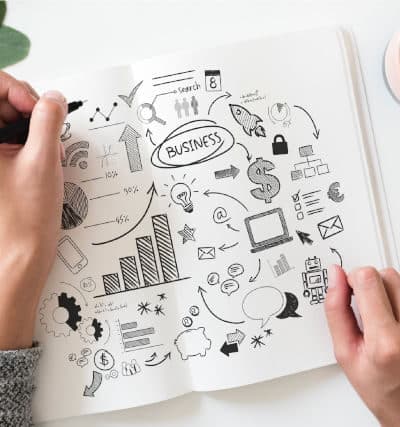 search
8
BUSINESS
10%
90%
45%
$
$
€
@
$